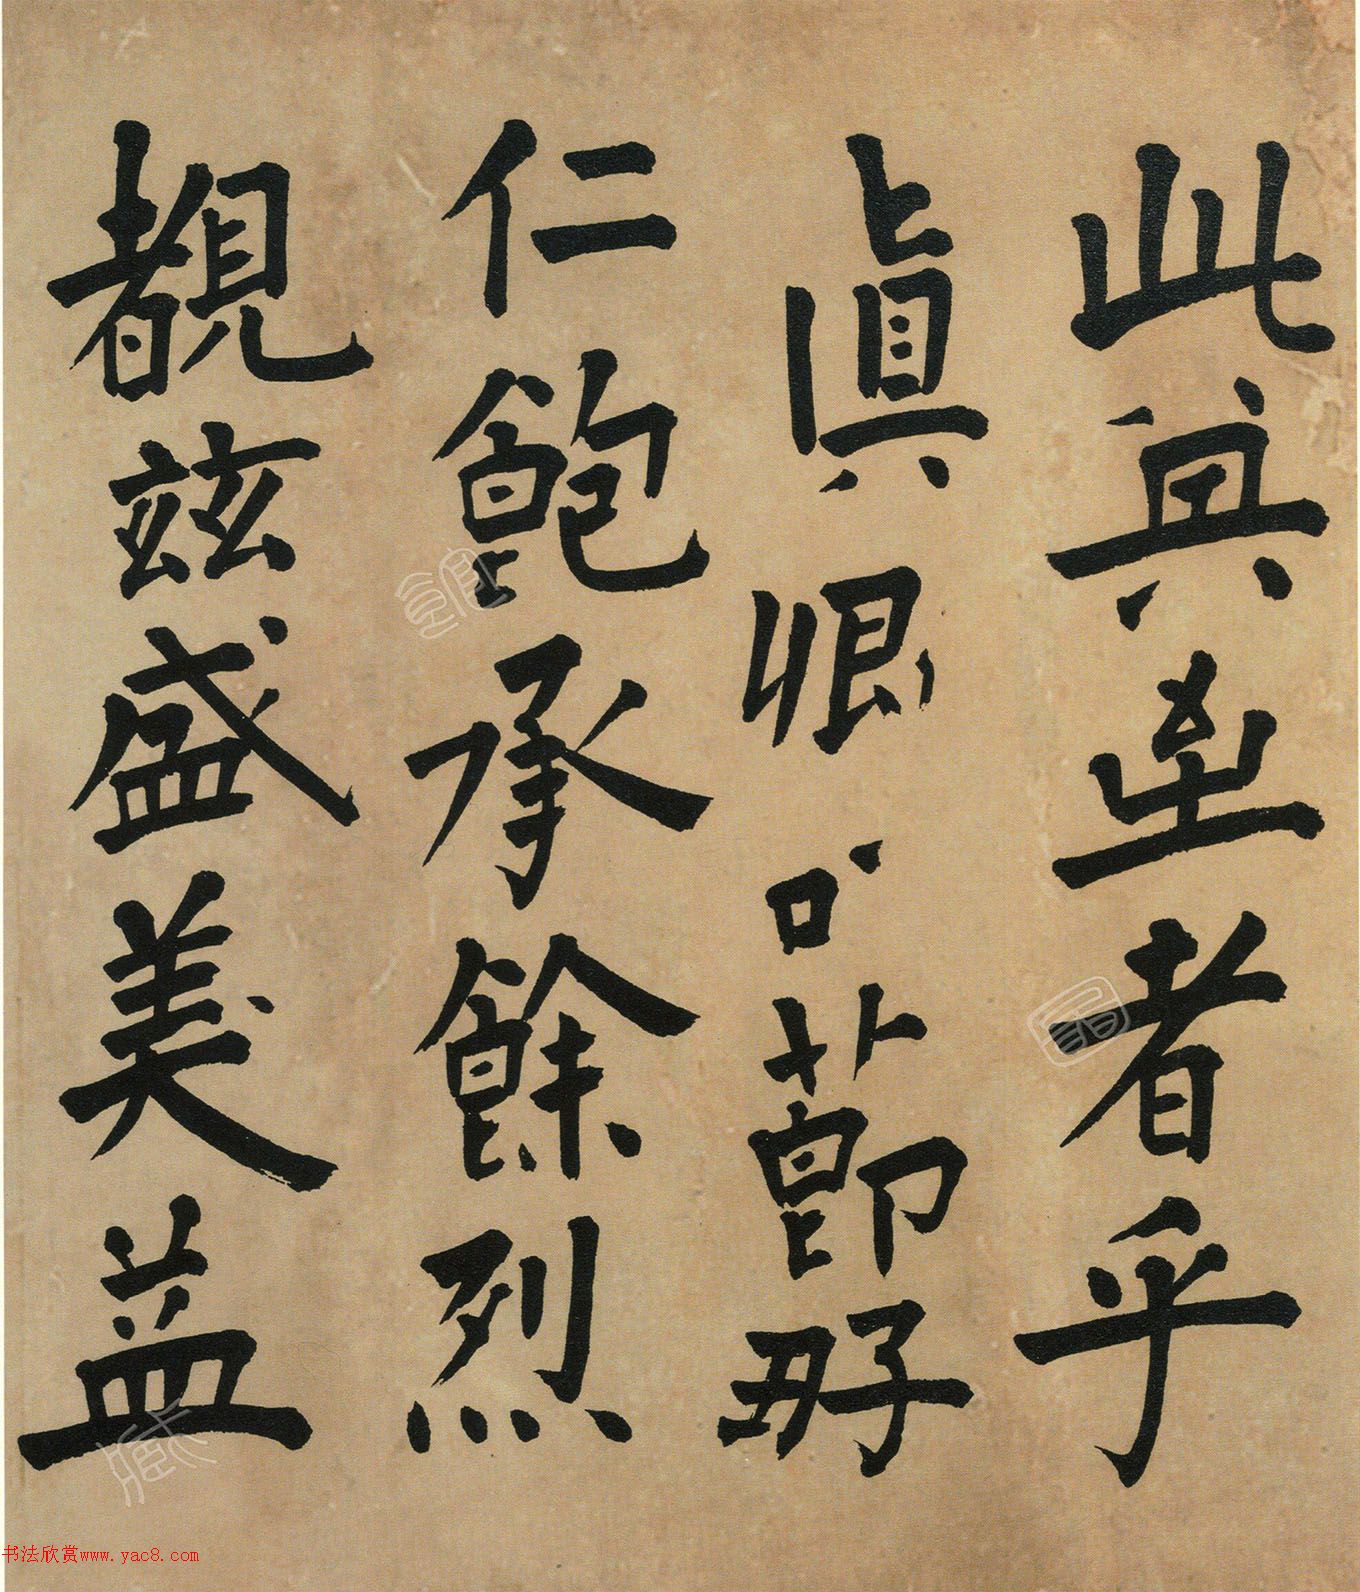 此其至者乎
眞卿節好
仁飽承餘烈
覩茲盛美益
书法欣赏www.yac8.com